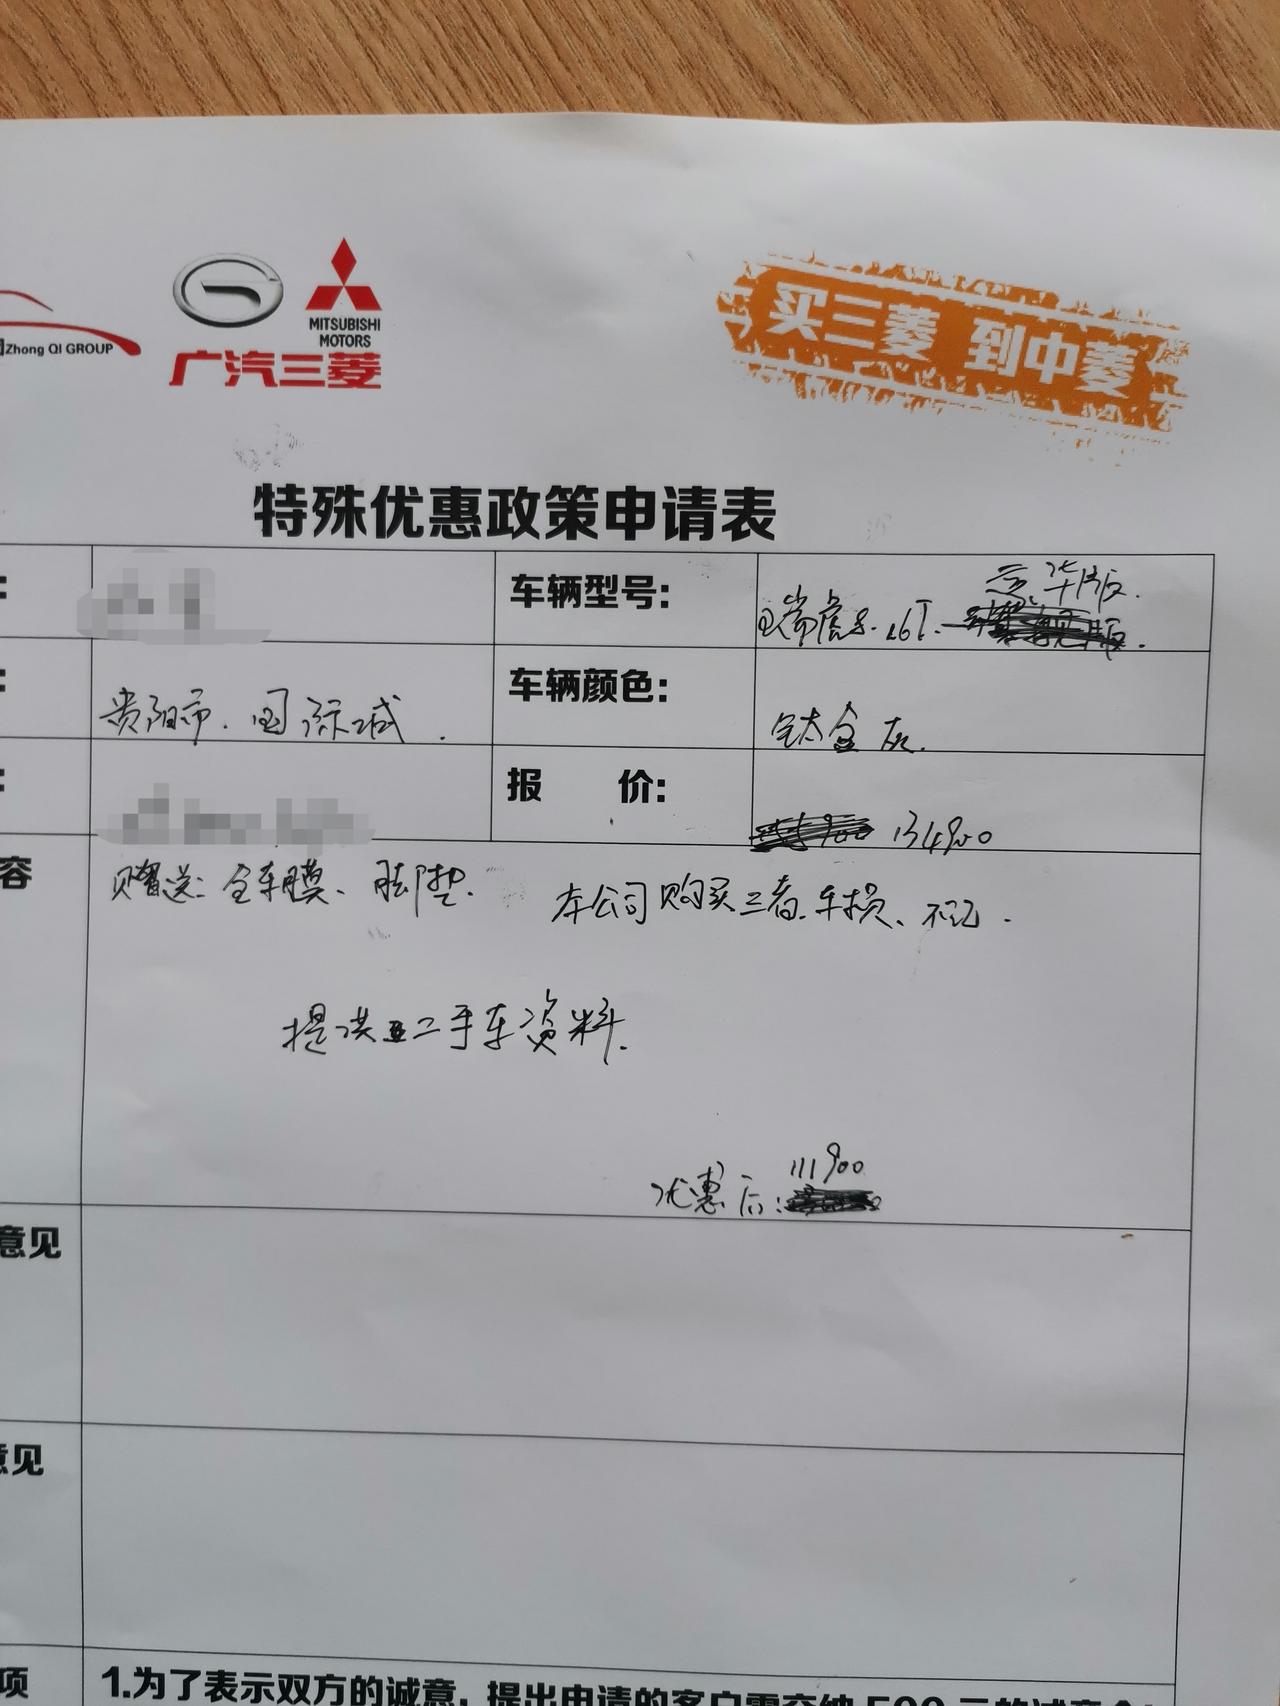 Zhong QI GROUP
MITSUBISHI
MOTORS
广汽三菱
买三菱 到中菱
特殊优惠政策申请表
车辆型号:
豪华版.
1.6T.
贵阳市. 国际城.
车辆颜色:
钛金灰.
报 价:
134900
容
赠送: 全车膜、脚垫. 本公司购买三者.车损、不计.
提供 二手车资料.
111900
优惠后:
意见
意见
项
1.为了表示双方的诚意，提出申请的客户需交纳 500 元的诚意金